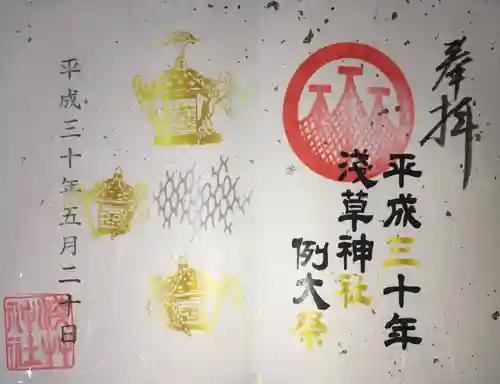 奉拝
平成三十年
淺草神社
例大祭
平成三十年五月二十日
淺草神社